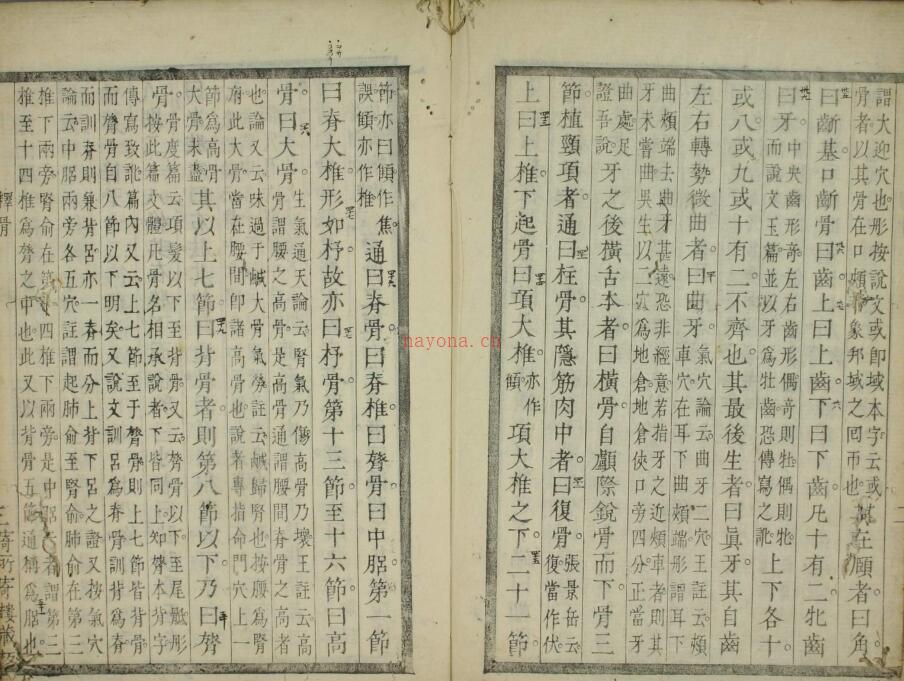 謂大迎穴也彤按說文或即域本字云或
骨者以其骨在口頰象邦域之囘帀也其在頤者曰角
曰齗基口齗骨曰齒上曰上齒下曰下齒凡十有二牝齒
曰牙中央齒形奇左右齒形偶奇則牡偶則牝
而說文玉篇並以牙爲牡齒恐傳寫之訛上下各十
或八或九或十有二不齊也其最後生者曰眞牙其自齒
左右轉勢微曲者曰曲牙氣穴論云曲牙二穴王註云頰
車穴在耳下曲頰端形謂耳下
曲頰端去曲牙甚遠恐非經意若指牙之近頰車者則其
牙未嘗曲吳生以二穴爲地倉地倉俠口旁四分正當牙
曲處足
證吾說牙之後橫舌本者曰橫骨自顱際銳骨而下骨三
節植頸項者通曰柱骨其隱筋肉中者曰復骨張景岳云
復當作伏
上曰上椎下起骨曰項大椎亦作
傾項大椎之下二十一節
節亦曰傾作焦
誤傾亦作椎通曰脊骨曰脊椎曰膂骨曰中䐃第一節
曰脊大椎形如杼故亦曰杼骨第十三節至十六節曰高
骨曰大骨生氣通天論云腎氣乃傷高骨乃壞王註云高
骨謂腰之高骨是高骨通謂腰間脊骨之高者
也論又云味過于鹹大骨氣勞註云鹹歸腎也按腰爲腎
府此大骨當在腰間卽諸高骨也說者專指命門穴上一
節爲高骨
大骨未盡其以上七節曰背骨者則第八節以下乃曰膂
骨骨度篇云項髮以下至背骨又云膂骨以下至尾骶彤
按此篇文體凡骨名相承說者下皆同上知膂本背字
傳寫致訛篇內又云上七節至于膂骨則上七節皆背骨
而膂骨自八節以下明矣又說文訓呂爲脊骨訓脊爲背
而訓脊則兼背呂亦一脊而分上背下呂之證又按氣穴
論云中䐃兩旁各五穴註謂起肺俞至腎俞肺俞在第三
椎下兩旁腎俞在第十四椎下兩旁是中䐃者謂第三
椎至十四椎爲膂之中也此又以背骨五節通稱爲䐃也
釋骨
二
三
nayona.cn